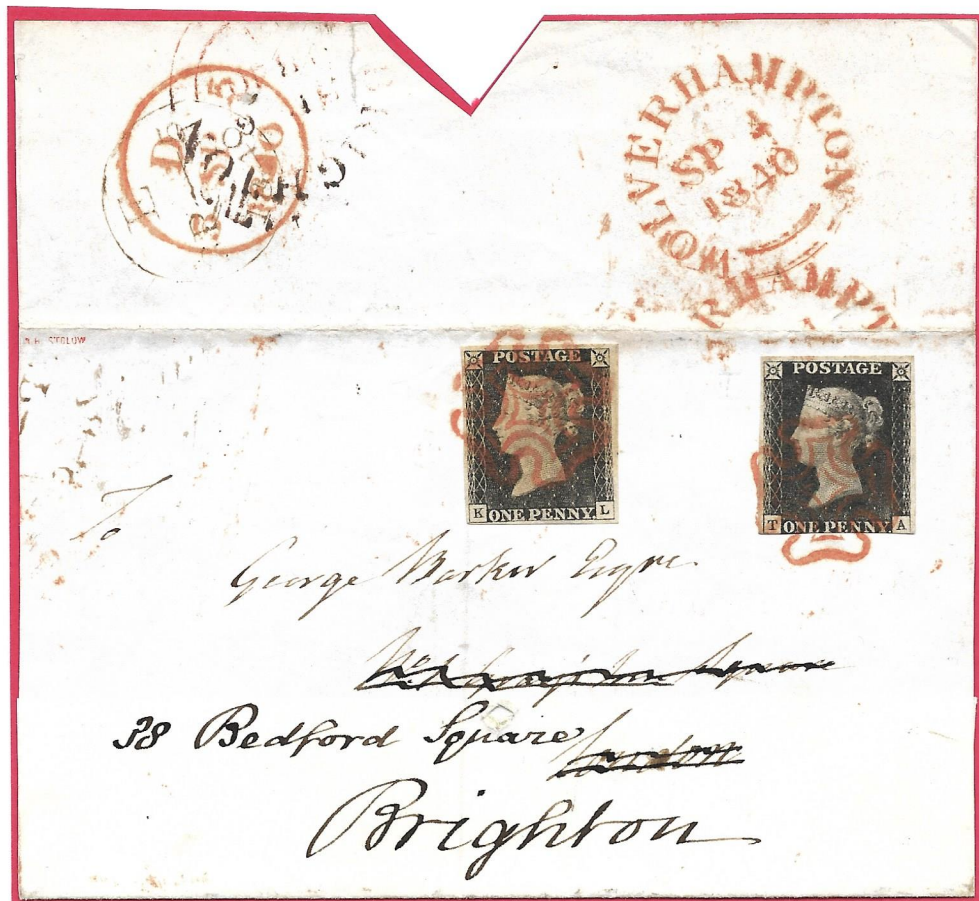 WOLVERHAMPTON
SP 4
1840
D
5
1840
RHAMPT
POSTAGE
K ONE PENNY L
POSTAGE
T ONE PENNY A
To
George Barker Esqre
Square
38 Bedford Square
London
Brighton